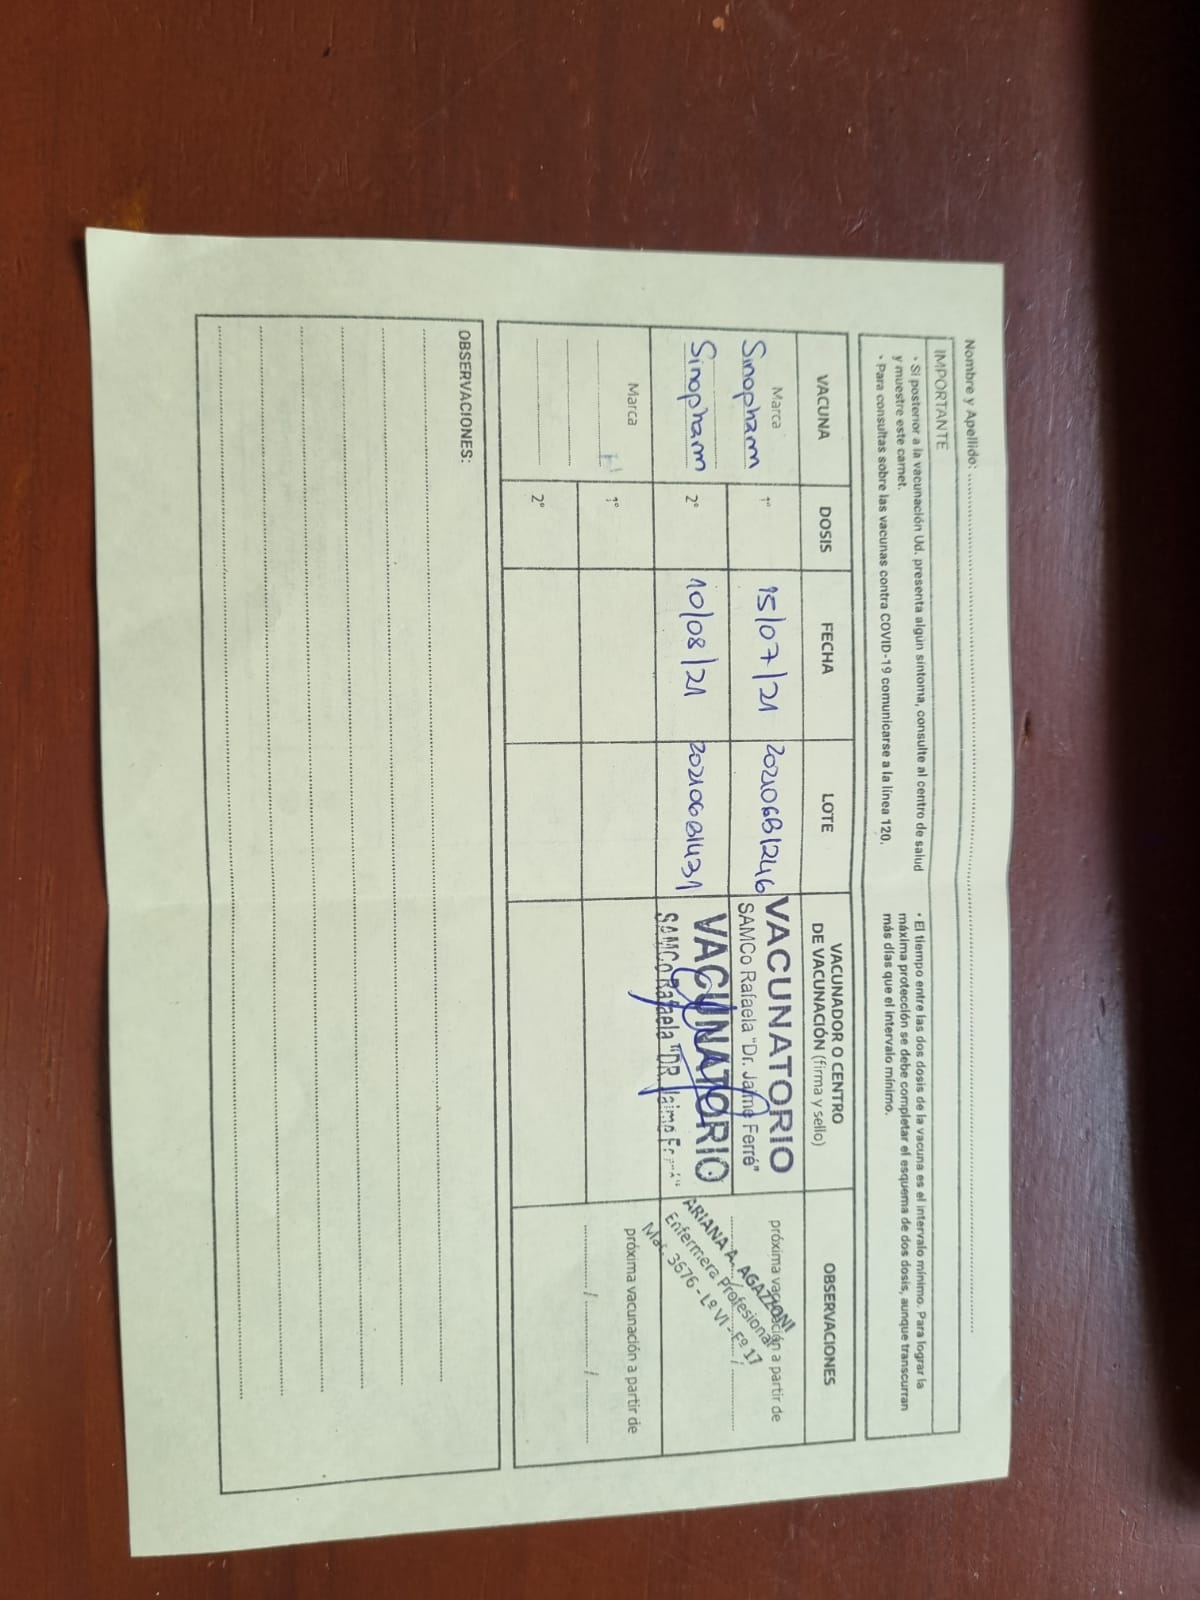 Nombre y Apellido:
IMPORTANTE
• Si posterior a la vacunación Ud. presenta algún síntoma, consulte al centro de salud
y muestre este carnet.
• Para consultas sobre las vacunas contra COVID-19 comunicarse a la línea 120.
• El tiempo entre las dos dosis de la vacuna es el intervalo mínimo. Para lograr la
máxima protección se debe completar el esquema de dos dosis, aunque transcurran
más días que el intervalo mínimo.
VACUNA DOSIS FECHA LOTE VACUNADOR O CENTRO DE VACUNACIÓN (firma y sello) OBSERVACIONES
Marca
Sinopharm 1º 15/07/21 202106B1246 VACUNATORIO
SAMCo Rafaela "Dr. Jaime Ferré"
próxima vacunación a partir de
Sinopharm 2º 10/08/21 202106B1431 VACUNATORIO
SAMCo Rafaela "DR. Jaime Ferré"
ARIANA A. AGAZZONI
Enfermera Profesional
Mat. 3676 - Lº VI - Fº 17
Marca 1º próxima vacunación a partir de
/ /
2º
OBSERVACIONES: